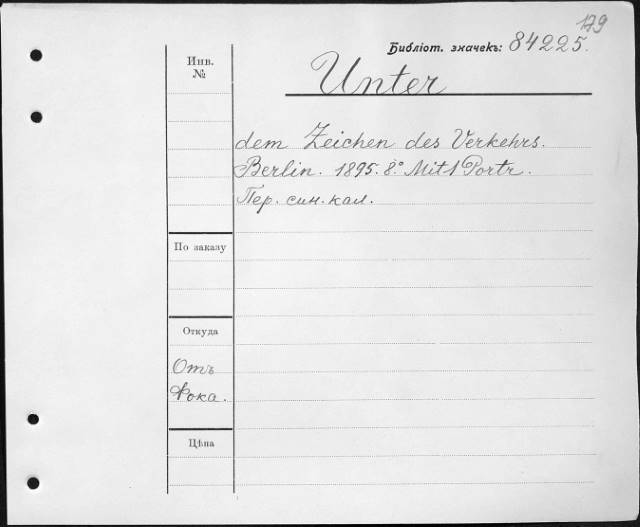 179
Библіот. значекъ: 84225.
Инв.
№
Unter
dem Zeichen des Verkehrs.
Berlin. 1895. 8.° Mit 1 Portr.
Пер. син. кал.
По заказу
Откуда
Отъ
Фока.
Цѣна